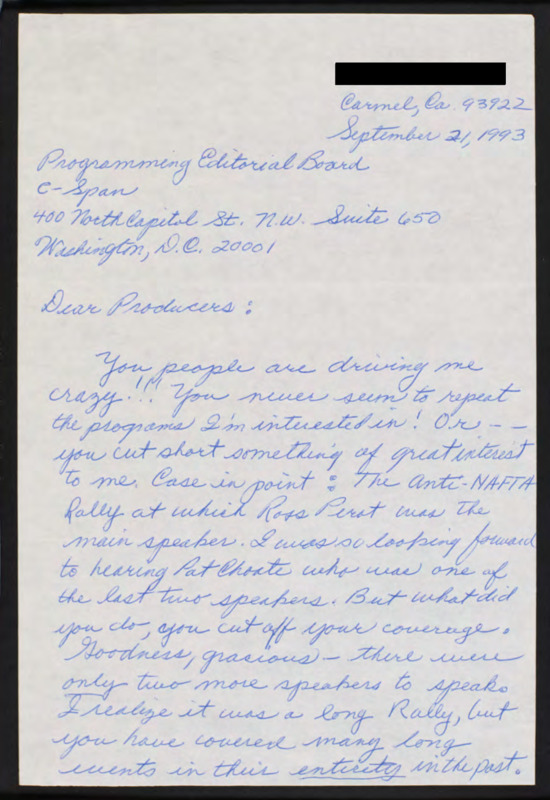 Carmel, Ca. 93922
September 21, 1993
Programming Editorial Board
C-Span
400 North Capitol St. N.W. Suite 650
Washington, D.C. 20001
Dear Producers:
You people are driving me
crazy!!! You never seem to repeat
the programs I'm interested in! Or - -
you cut short something of great interest
to me. Case in point: The Anti-NAFTA
Rally at which Ross Perot was the
main speaker. I was so looking forward
to hearing Pat Choate who was one of
the last two speakers. But what did
you do, you cut off your coverage.
Goodness, gracious - there were
only two more speakers to speak.
I realize it was a long Rally, but
you have covered many long
events in their entirety in the past.